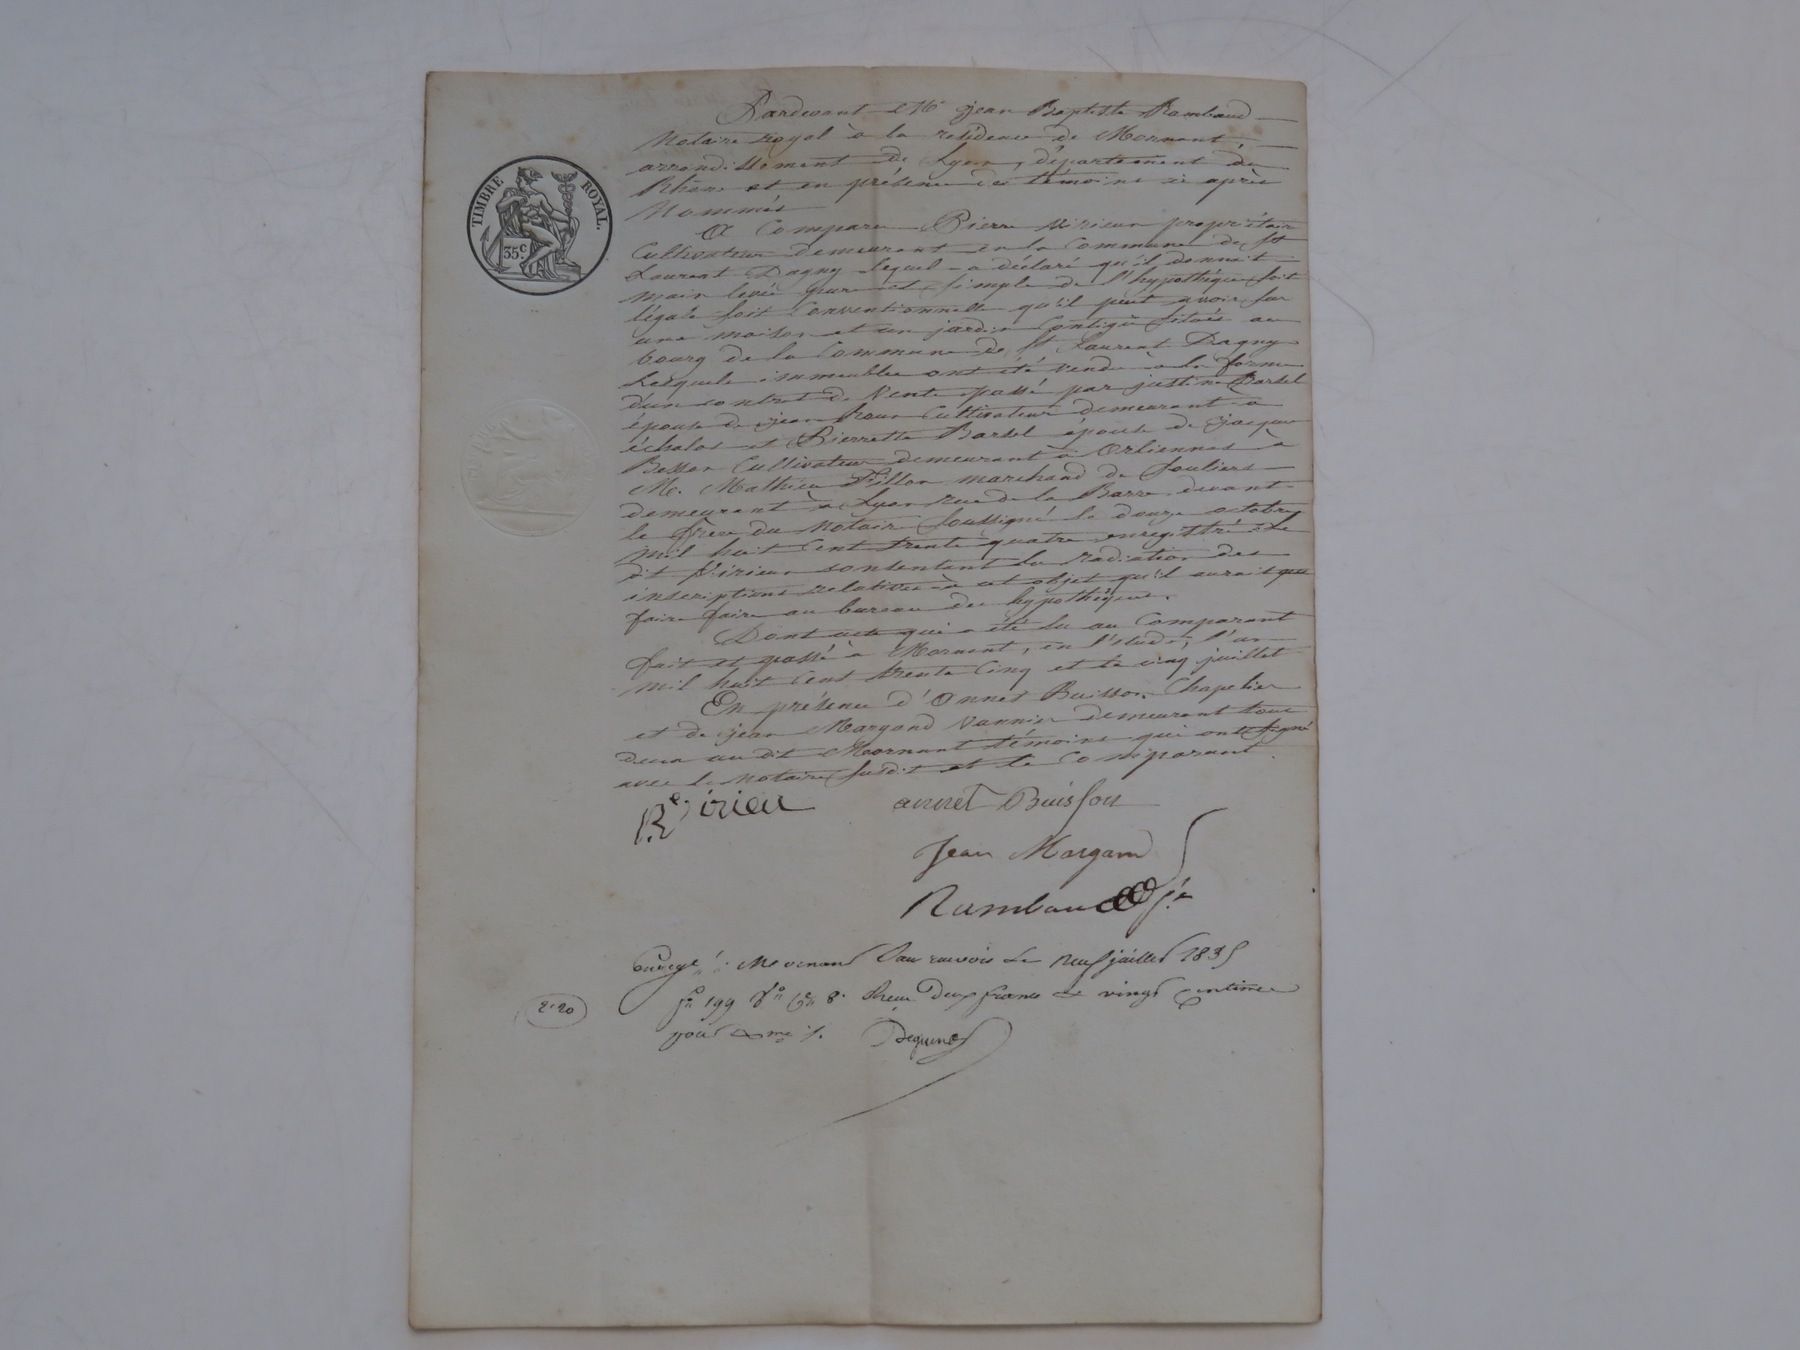 TIMBRE ROYAL.
35c.
Pardevant Me jean Baptiste Rambaud
Notaire royal à la résidence de Mornant,
arrondissement de Lyon, département du
Rhône et en présence des témoins ci après
Nommés
A Comparu Pierre Virieu propriétaire
Cultivateur demeurant en la Commune de St
Laurent Dagny lequel a déclaré qu'il donnait
main levée pure et simple de l'hypothèque soit
légale soit Conventionnelle qu'il peut avoir sur
une maison et un jardin Contigu situés au
bourg de la Commune de St Laurent Dagny
Lesquels immeubles ont été vendu à la forme
d'un contrat de Vente passé par justine Bartel
épouse de jean Cultivateur demeurant à
échalas et Pierrette Bartel épouse de jacques
Besson Cultivateur demeurant à Orlienas à
Mr. Mathieu marchand de souliers
demeurant à Lyon rue de la Barre devant
le frere du Notaire soussigné le douze octobre
mil huit Cent trente quatre enregistré : Le
dit Virieu consentant la radiation des
inscriptions relatives à cet objet qu'il aurait pu
faire faire au bureau des hypothèques.
Dont acte qui a été lu au Comparant
fait et passé à Mornant, en l'étude, l'an
mil huit Cent trente Cinq et le cinq juillet
En présence d'Onnet Buisson Chapelier
et de jean Margand Vannier demeurant tous
deux au dit Mornant témoins qui ont signé
avec le Notaire susdit et le Comparant.
Virieu
annet Buisson
Jean Margand
Rambaud
à Mornant Sans renvois Le Neuf juillet 1835
fo 199 Vo Co 8. Reçu Deux francs & vingt centimes
2.20
pour